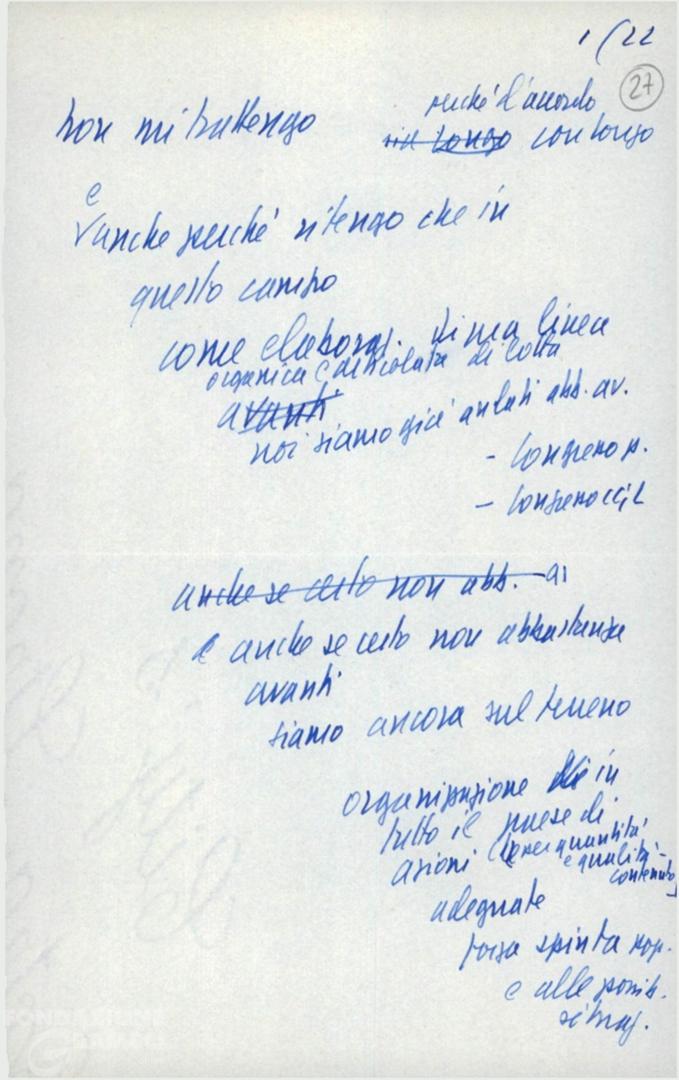 1/22
27
non mi trattengo
perché d'accordo
con Longo
e
anche perché ritengo che in
questo campo
come elaboraz. di una linea
organica e articolata di lotta
avanti
noi siamo già andati abb. av.
- Congresso p.
- Congresso CGIL
anche se certo non abb. av
e anche se certo non abbastanza
avanti
siamo ancora sul terreno
organizzazione in
tutto il paese di
azioni (per quantità
e qualità -
contenuto)
adeguate
forza spinta pop.
e alle possib.
situaz.
FONDAZIONE
GRAMSCI